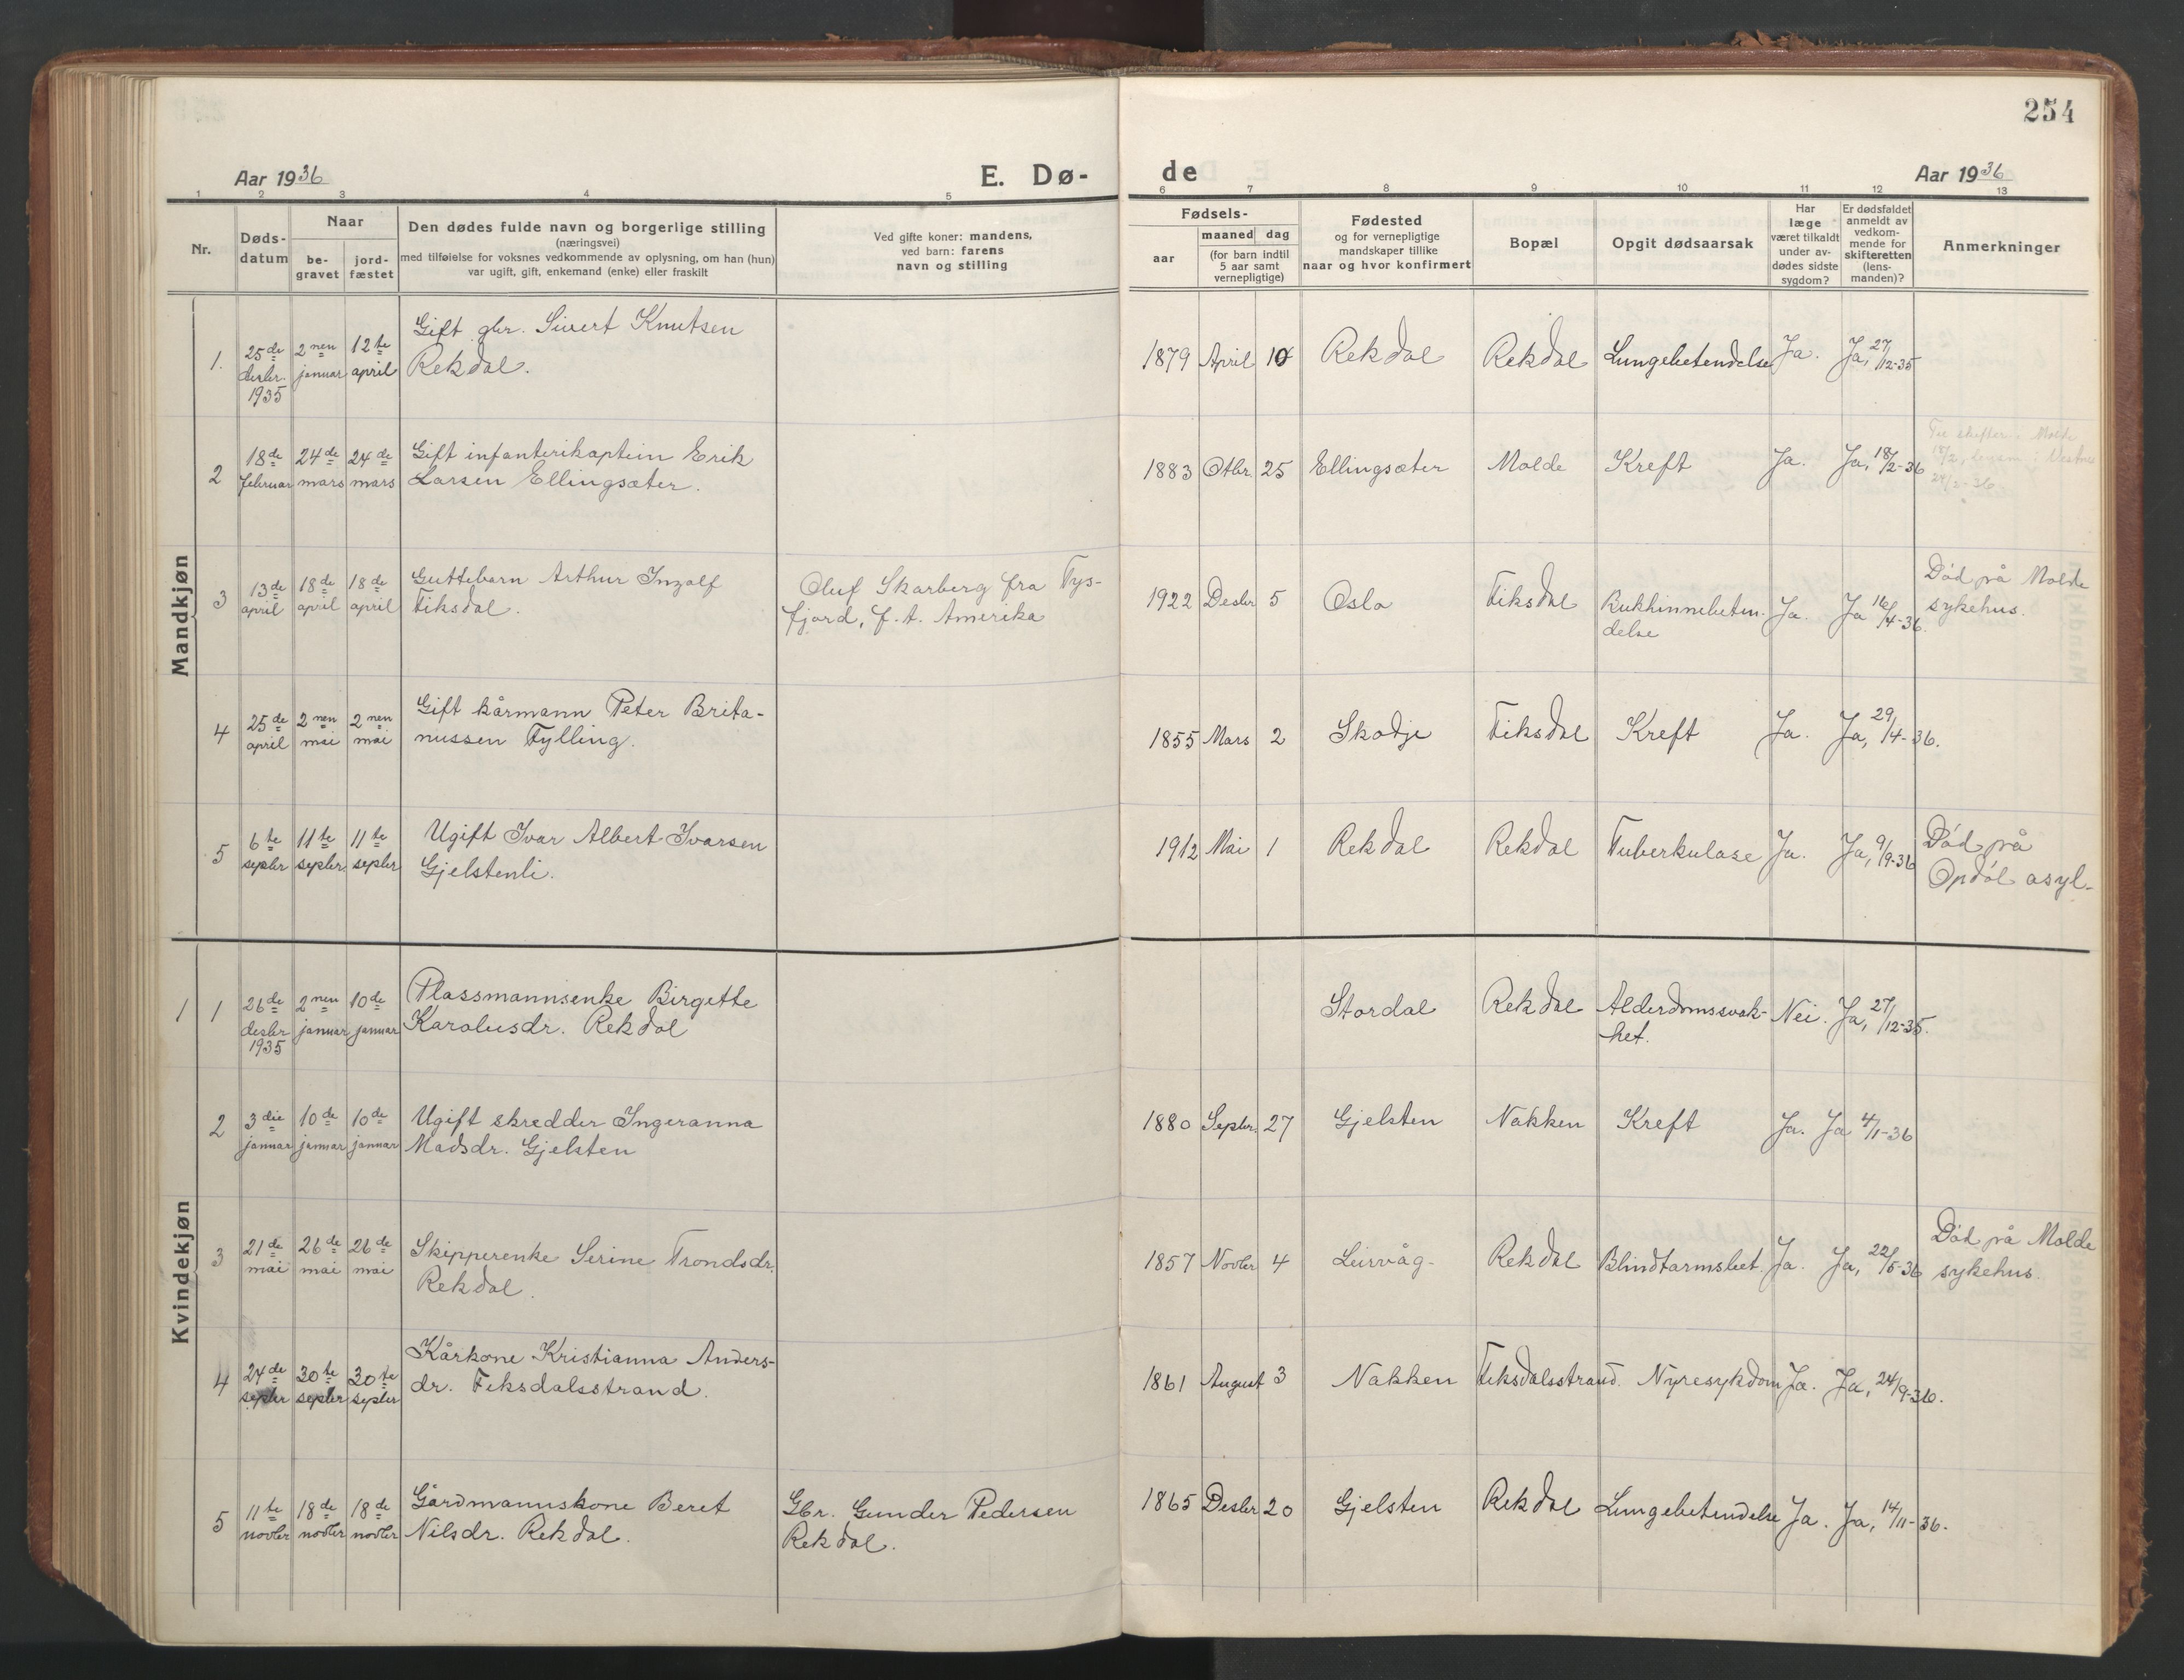 254
Aar 1936
E. Dø-
de
Aar 1936
1 2 3 4 5 6 7 8 9 10 11 12 13
Nr.
Døds-
datum
Naar
be-
gravet
jord-
fæstet
Den dødes fulde navn og borgerlige stilling
(næringsvei)
med tilføielse for voksnes vedkommende av oplysning, om han (hun)
var ugift, gift, enkemand (enke) eller fraskilt
Ved gifte koner: mandens,
ved barn: farens
navn og stilling
Fødsels-
aar
maaned dag
(for barn indtil
5 aar samt
vernepligtige)
Fødested
og for vernepligtige
mandskaper tillike
naar og hvor konfirmert
Bopæl
Opgit dødsaarsak
Har
læge
været tilkaldt
under av-
dødes sidste
sygdom?
Er dødsfaldet
anmeldt av
vedkom-
mende for
skifteretten
(lens-
manden)?
Anmerkninger
Mandkjøn
1. 25de desbr. 1935 2nen januar 12te april
Gift gbr. Sivert Knutsen
Rekdal.
1879 April 10 Rekdal Rekdal Lungebetendelse Ja. Ja, 27/12-35
2 18de februar 24de mars 24de mars
Gift infanterikaptein Erik
Larsen Ellingsæter.
1883 Otbr. 25 Ellingsæter Molde Kreft Ja. Ja, 18/2-36
Molde
18/2, i Vestnes
2-36
3 13de april 18de april 18de april
Guttebarn Arthur Ingolf
Fiksdal.
Oluf Skarberg fra Tys-
fjord, f. t. Amerika
1922 Desbr 5 Oslo Fiksdal Bukhinnebeten-
delse
Ja. Ja 16/4-36.
Død på Molde
sykehus.
4 25de april 2nen mai 2nen mai
Gift kårmann Peter Brita-
nussen Fylling.
1855 Mars 2 Skodje Fiksdal Kreft Ja. Ja, 29/4-36.
5 6te septbr 11te septbr. 11te septbr
Ugift Ivar Albert Ivarsen
Gjelstenli.
1912 Mai 1 Rekdal Rekdal Tuberkulose Ja. Ja, 9/9-36
Død på
Opdøl asyl.
Kvindekjøn
1 1 26de desbr 1935 2nen januar 10de januar
Plassmannsenke Birgitte
Karolusdr. Rekdal
Stordal Rekdal Alderdomssvak-
het.
Nei. Ja, 27/12-35.
2 3die januar 10de januar 10de januar
Ugift skredder Ingeranna
Madsdr. Gjelsten
1880 Septbr. 27 Gjelsten Nakken Kreft Ja. Ja 4/1-36
3 21de mai 26de mai 26de mai
Skipperenke Serine Trondsdr.
Rekdal.
1857 Novbr 4 Leirvåg. Rekdal Blindtarmsbet. Ja. Ja, 22/5-36
Død på Molde
sykehus.
4 24de septbr 30te septbr 30te septbr
Kårkone Kristianna Anders-
dr. Fiksdalsstrand.
1861 August 3 Nakken Fiksdalsstrand. Nyresykdom Ja. Ja, 24/9-36.
5 11te novbr 18de novbr 18de novbr
Gårdmannskone Beret
Nilsdr. Rekdal.
Gbr. Gunder Pedersen
Rekdal.
1865 Desbr 20 Gjelsten Rekdal Lungebetendelse Ja. Ja, 14/11-36.